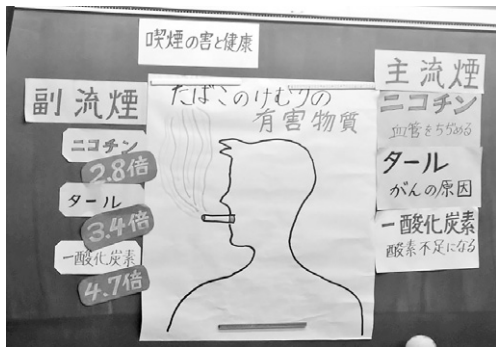 喫煙の害と健康
副流煙
ニコチン
2.8倍
タール
3.4倍
一酸化炭素
4.7倍
たばこのけむりの
有害物質
主流煙
ニコチン
血管をちぢめる
タール
がんの原因
一酸化炭素
酸素不足になる